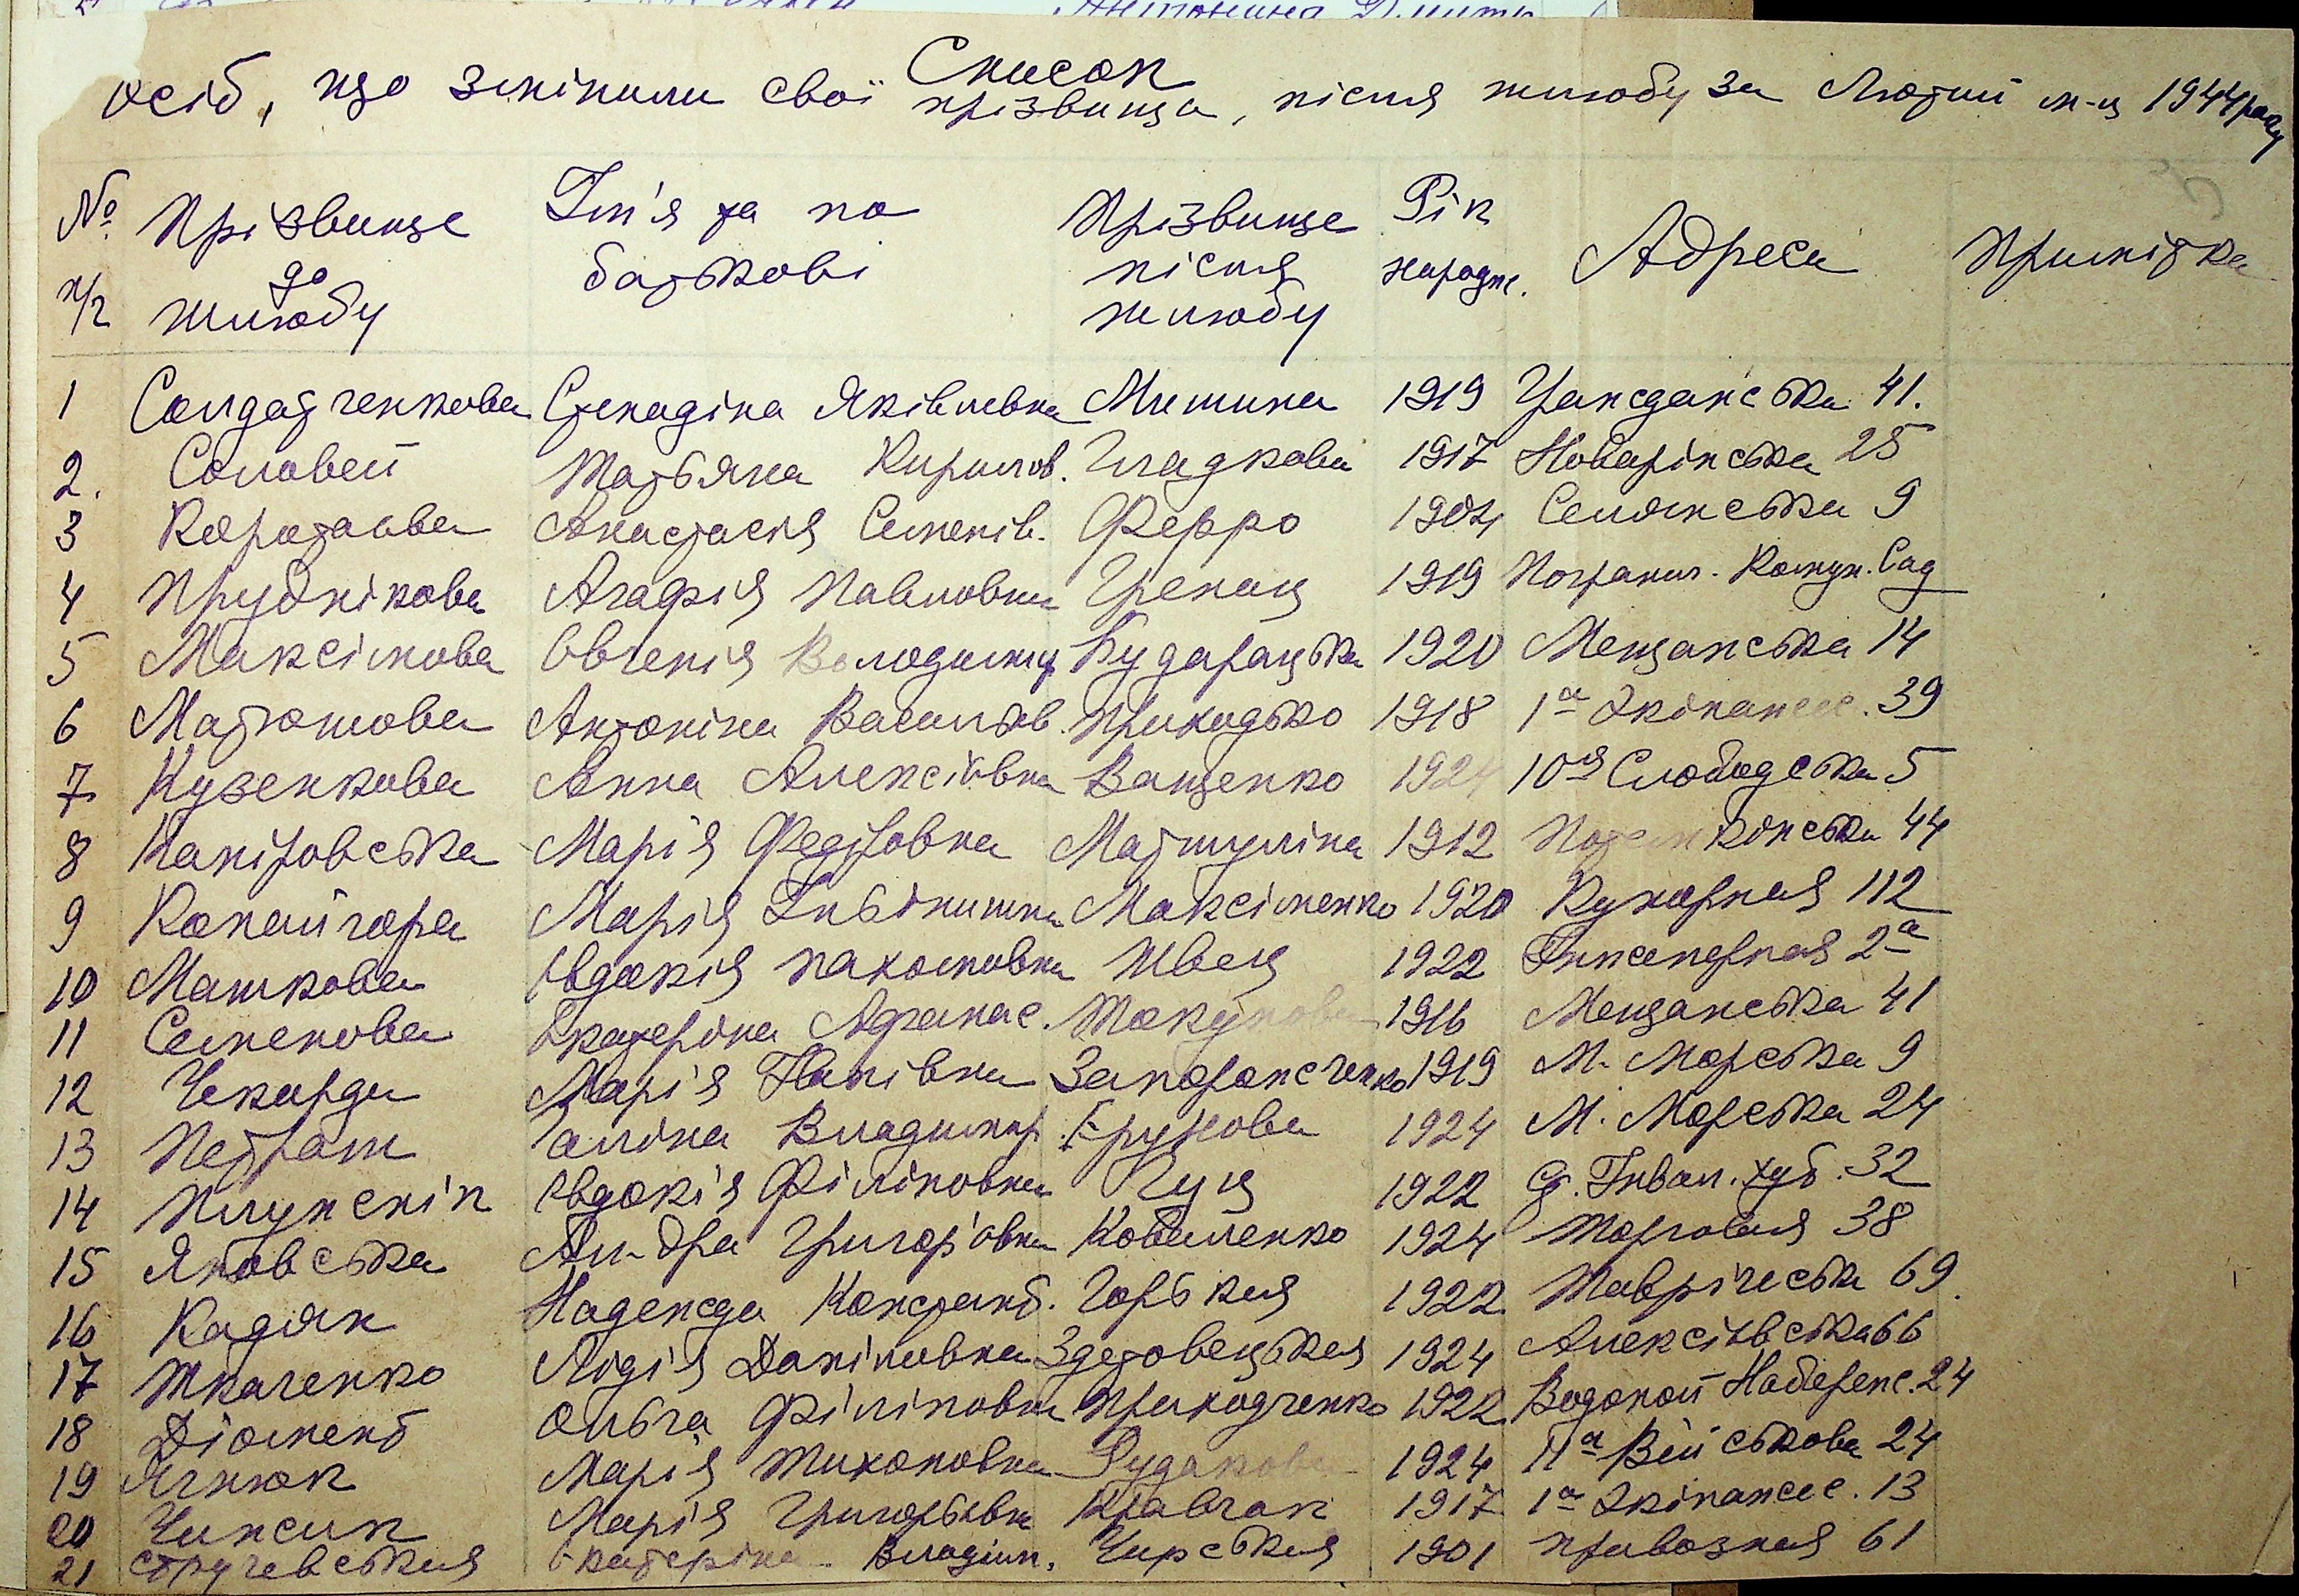 Список
осіб, що змінили свої прізвища, після шлюбу за Лютий м-ц 1944 року
№ п/г Прізвище до шлюбу Ім'я та по батькові Прізвище після шлюбу Рік народж. Адреса Примітка
1 Солдатченкова Генадіна Яківлевна Мишина 1919 Гражданська 41.
2. Соловей Татьяна Кирилов. Гладкова 1917 Новарінська 25
3 Каратаева Анастасія Семенів. Ферро 1904 Селянська 9
4 Пруднікова Агафія Павловна Грекац 1919 Погранич. Комун. Сад
5 Максімова Євгенія Володимир Бударацька 1920 Мещанська 14
6 Матюшова Антоніна Васильев. Приходько 1918 1а Экіпажес. 39
7 Кузенкова Анна Алексіївна Ващенко 1924 10я Слободська 5
8 Каніровська Марія Федоровна Матшуліна 1912 Потемкінська 44
9 Копайгора Марія Максіменко 1920 Кузнерная 112
10 Машкова Євдокія Пахомовна Швец 1922 Інженерная 2а
11 Семенова Екатеріна Афанас. 1916 Мещанська 41
12 Чекарда Марія Запорожченко 1919 М. Морська 9
13 Петраш Галіна Владимир. 1924 М. Морська 24
14 Євдокія Філіповна Куц 1922 Інвал. 32
15 Яновська Ал-дра Григор'овна Коваленко 1924 Торговая 38
16 Кадяк Надежда Констант. Горькая 1922 Таврічеська 69.
17 Ткаченко Лідія Даніловна Здетовецькая 1924 Алексіївська 66
18 Діомент Ольга Філіповна Приходченко 1922 Водопой Набережс. 24
19 Ягнюк Марія Тихоновна Рудакова 1924 11а Військова 24
20 Чипсик Марія Григорьевна Кравчак 1917 1а Экіпажес. 13
21 Стручевськая Екатеріна Владім. Чирськая 1901 Привозная 61